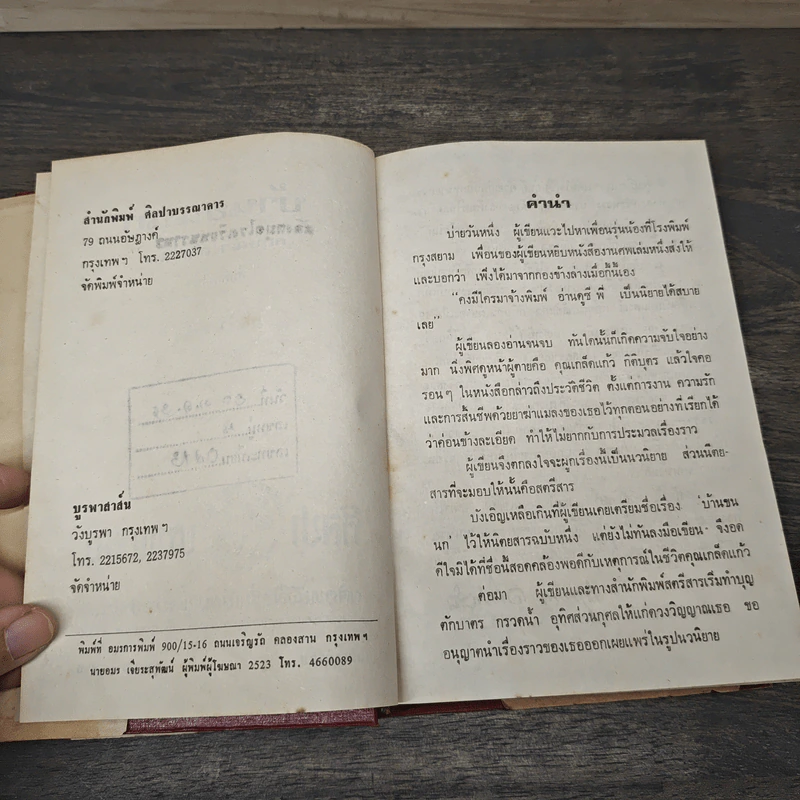 สำนักพิมพ์ ศิลปาบรรณาคาร
79 ถนนอัษฎางค์
กรุงเทพฯ โทร. 2227037
จัดพิมพ์จำหน่าย
บูรพาสาส์น
วังบูรพา กรุงเทพฯ
โทร. 2215672, 2237975
จัดจำหน่าย
พิมพ์ที่ อมรการพิมพ์ 900/15-16 ถนนเจริญรัถ คลองสาน กรุงเทพฯ
นายอมร เจียระสุพัฒน์ ผู้พิมพ์ผู้โฆษณา 2523 โทร. 4660089
คำนำ
บ่ายวันหนึ่ง ผู้เขียนแวะไปหาเพื่อนรุ่นน้องที่โรงพิมพ์
กรุงสยาม เพื่อนของผู้เขียนหยิบหนังสืองานศพเล่มหนึ่งส่งให้
และบอกว่า เพิ่งได้มาจากกองข้างล่างเมื่อกี้นี้เอง
"คงมีใครมาจ้างพิมพ์ อ่านดูซี พี่ เป็นนิยายได้สบาย
เลย"
ผู้เขียนลองอ่านจนจบ ทันใดนั้นก็เกิดความจับใจอย่าง
มาก นึ่งพิศดูหน้าผู้ตายคือ คุณเกล็ดแก้ว กิติบุตร แล้วใจคอ
รอนๆ ในหนังสือกล่าวถึงประวัติชีวิต ตั้งแต่การงาน ความรัก
และการสิ้นชีพด้วยยาฆ่าแมลงของเธอไว้ทุกตอนอย่างที่เรียกได้
ว่าค่อนข้างละเอียด ทำให้ไม่ยากกับการประมวลเรื่องราว
ผู้เขียนจึงตกลงใจจะผูกเรื่องนี้เป็นนวนิยาย ส่วนนิตย-
สารที่จะมอบให้นั้นคือสตรีสาร
บังเอิญเหลือเกินที่ผู้เขียนเคยเตรียมชื่อเรื่อง 'บ้านขน
นก' ไว้ให้นิตยสารฉบับหนึ่ง แต่ยังไม่ทันลงมือเขียน จึงอด
ดีใจมิได้ที่ชื่อนี้สอดคล้องพอดีกับเหตุการณ์ในชีวิตคุณเกล็ดแก้ว
ต่อมา ผู้เขียนและทางสำนักพิมพ์สตรีสารเริ่มทำบุญ
ตักบาตร กรวดน้ำ อุทิศส่วนกุศลให้แก่ดวงวิญญาณเธอ ขอ
อนุญาตนำเรื่องราวของเธอออกเผยแพร่ในรูปนวนิยาย